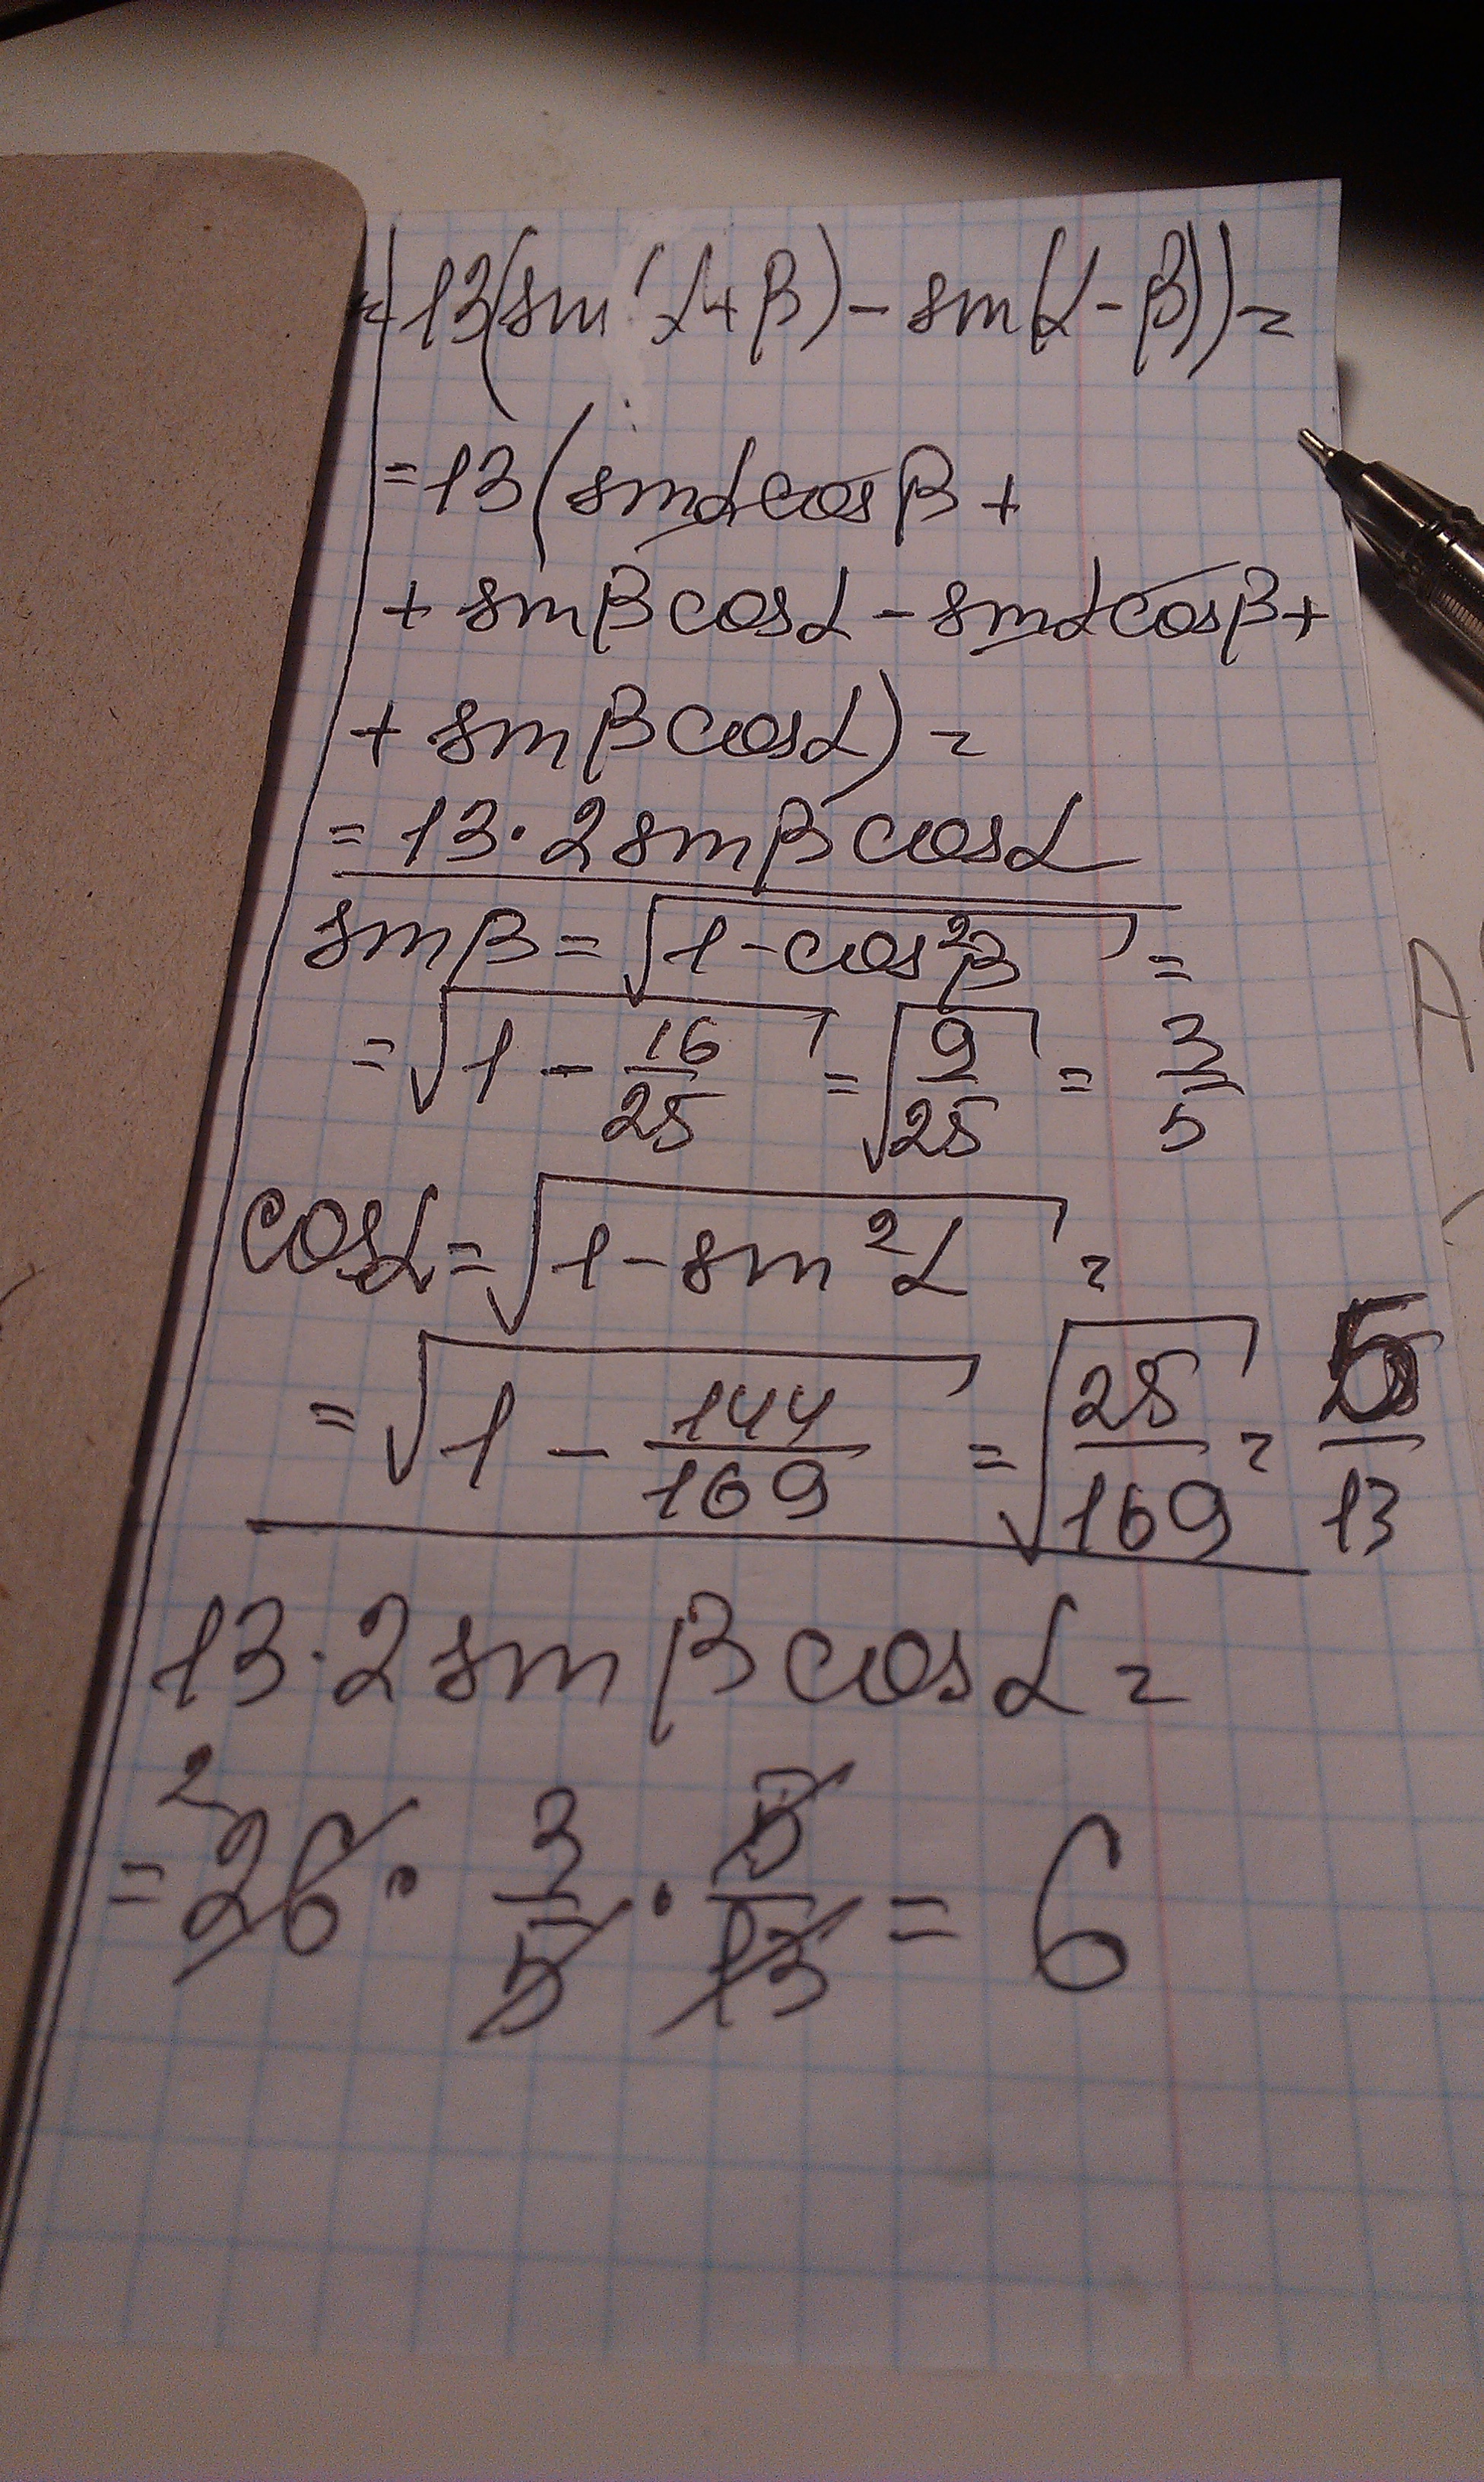 =13(sin(α+β)-sin(α-β))=
=13(sinαcosβ+
+sinβcosα-sinαcosβ+
+sinβcosα)=
=13·2sinβcosα
sinβ=√(1-cos²β)=
=√(1-16/25)=√(9/25)=3/5
cosα=√(1-sin²α)=
=√(1-144/169)=√(25/169)=5/13
13·2sinβcosα=
=²26·3/5·5/13=6